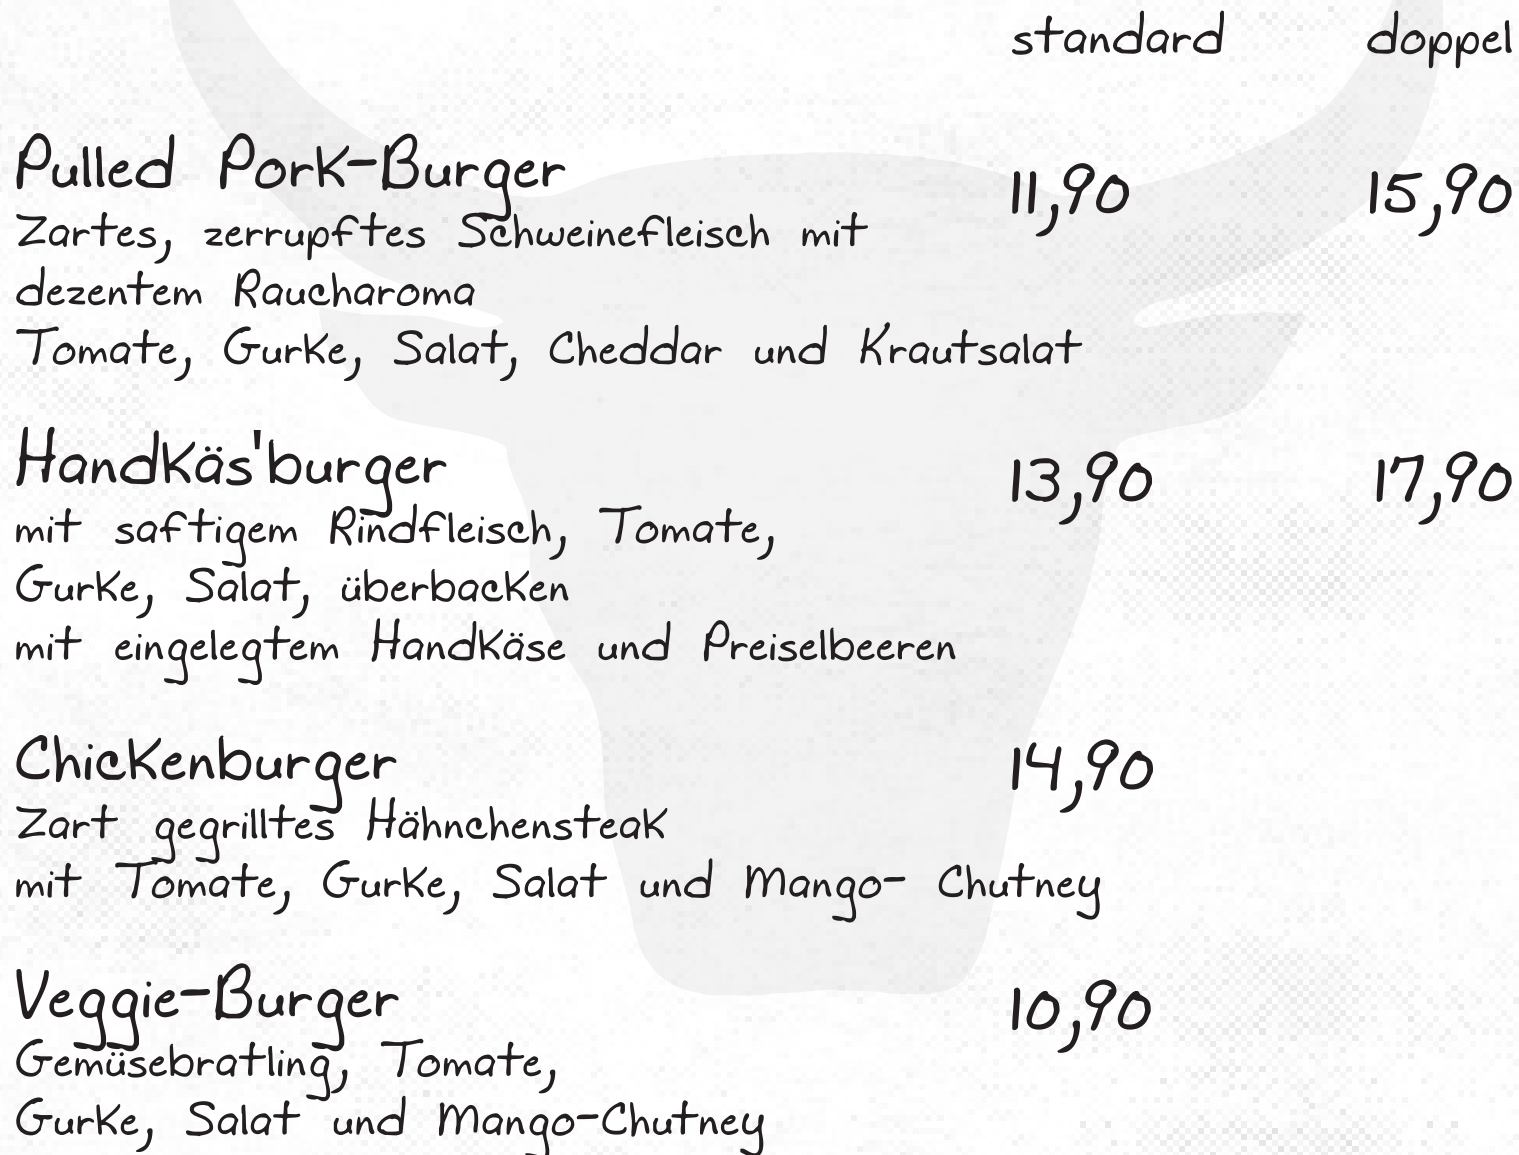 standard doppel
Pulled Pork-Burger 11,90 15,90
Zartes, zerrupftes Schweinefleisch mit
dezentem Raucharoma
Tomate, Gurke, Salat, Cheddar und Krautsalat
Handkäs'burger 13,90 17,90
mit saftigem Rindfleisch, Tomate,
Gurke, Salat, überbacken
mit eingelegtem Handkäse und Preiselbeeren
Chickenburger 14,90
Zart gegrilltes Hähnchensteak
mit Tomate, Gurke, Salat und Mango- Chutney
Veggie-Burger 10,90
Gemüsebratling, Tomate,
Gurke, Salat und Mango-Chutney